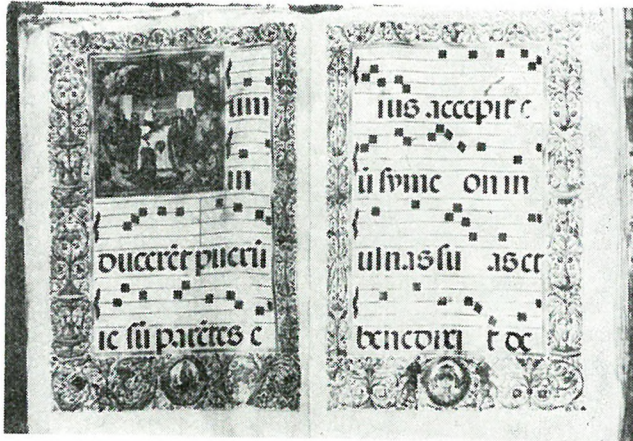 um
in
ducerēt puerū
ie sū parētes e
ius accepit e
ū syme on in
ulnas su as et
benedixi t de